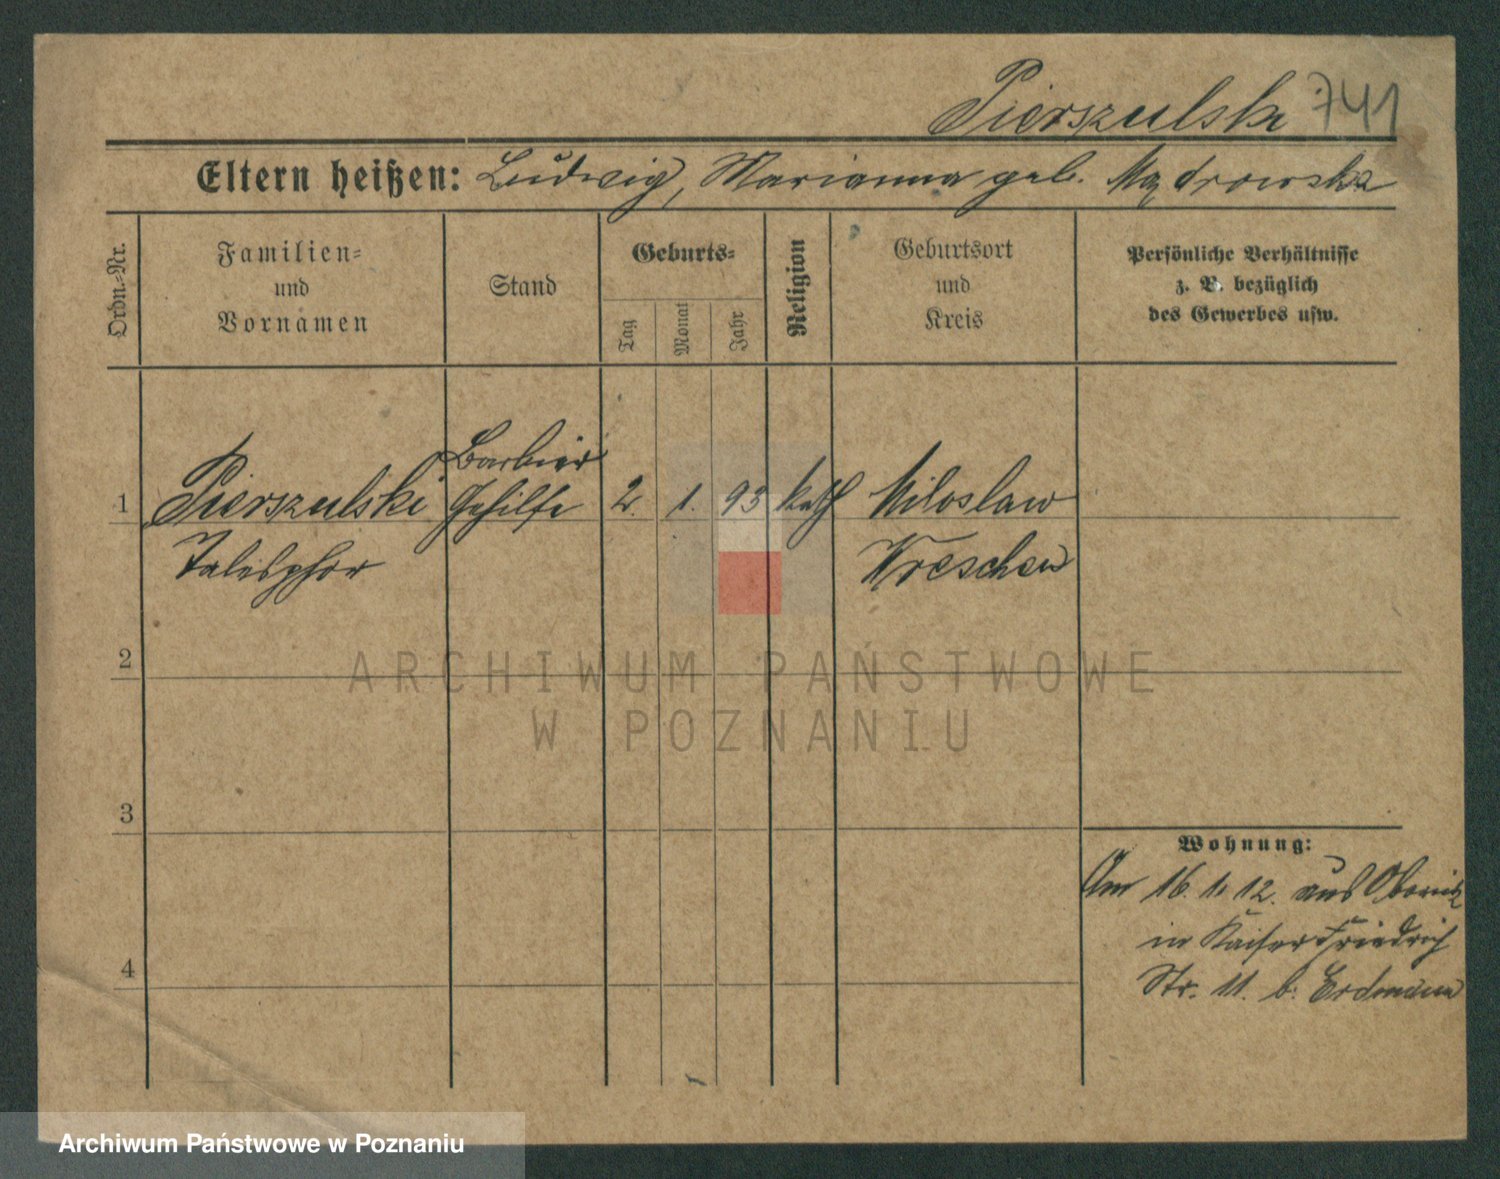 Pierszulski 741
Eltern heißen: Ludwig, Marianna geb. Mądrowska
Ordn.-Nr.
Familien-
und
Vornamen
Stand
Geburts-
Tag
Monat
Jahr
Religion
Geburtsort
und
Kreis
Persönliche Verhältnisse
z. B. bezüglich
des Gewerbes usw.
1 Pierszulski Barbier Gehilfe 2. 1. 93 kath Miloslaw
Telesphor Wreschen
2
3
4
Wohnung:
Am 16. 1. 12. aus
in Kaiser Friedrich
Str. 11. b. Erdmann
ARCHIWUM PAŃSTWOWE
W POZNANIU
Archiwum Państwowe w Poznaniu